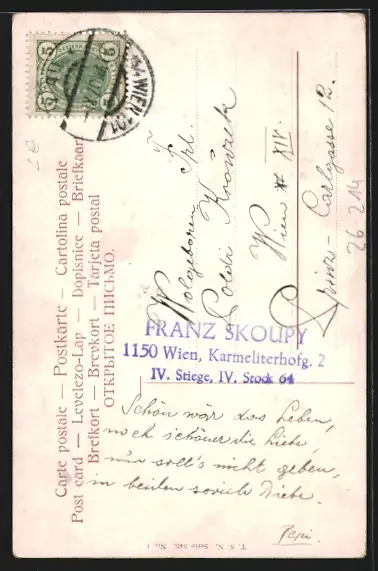 5 5
5 5
WIEN
Carte postale — Postkarte — Cartolina postale
Post card — Levelezo-Lap — Dopisnice — Briefkaart
Brefkort — Brevkort — Tarjeta postal
ОТКРЫТОЕ ПИСЬМО.
Wolgeboren Frl.
Poldi
Wien XIV.
Prinz-Carlgasse 12.
26-214
FRANZ SKOUPY
1150 Wien, Karmeliterhofg. 2
IV. Stiege, IV. Stock 64
Schön wär das Leben,
noch schöner die Liebe,
nur soll's nicht geben,
in beiden soviele Diebe.
Pepi.
T. S. N. Serie No. 1